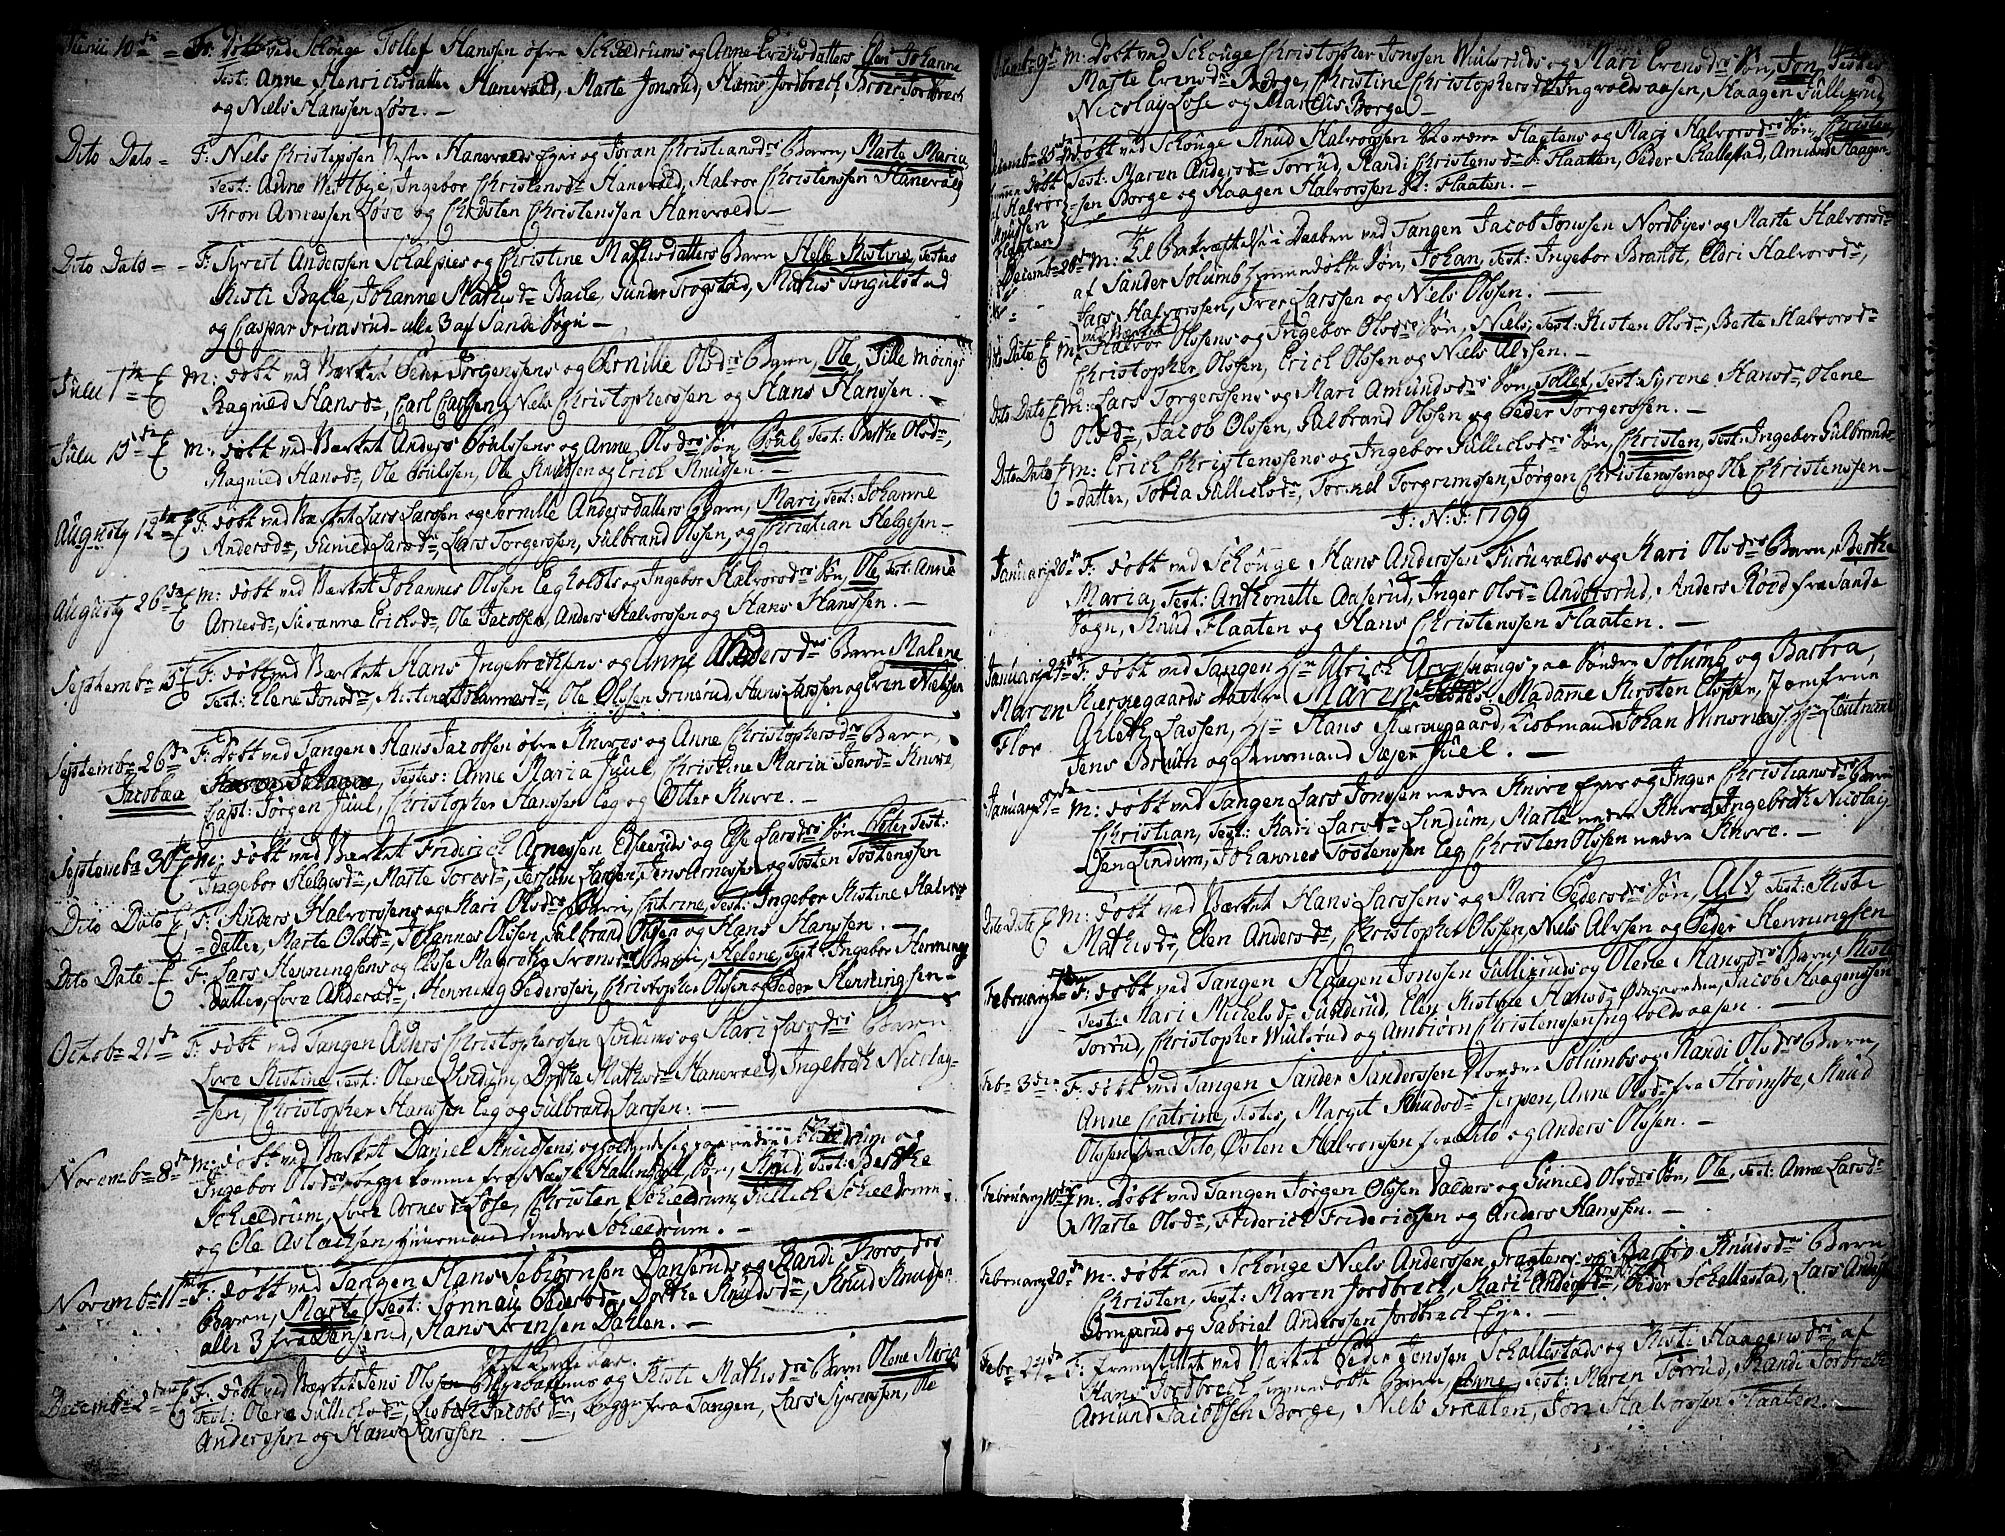 Junii 10de F: Døbt ved Schouge Tollef Hanssen øfre Schieldrums og Anne Evensdatters Elen Johanne
Test: Anne Henrichsdatter Hanevald, Marte Jonsrud, Hans Jordbrech, Broer Jordbrech
og Niels Hanssen Løse. –
Dito Dato – F: Niels Christenssen Hanevalds Eyer og Joran Christiansdrs Barn, Marte Maria
Test: Anne Westbye, Ingebor Christensdr Hanevald, Halvor Christenssen Hanevald,
Tron Arnessen Løse og Christen Christenssen Hanevald –
Dito Dato – F: Syvert Anderssen Schalpies og Christine Mathisdatters Barn Helle Kistine, Testes
Kisti Baile, Johanne Mathisdr Baile, Gunder Trogstad, Mathis Tingulstad
og Caspar Grimsrud alle 3 af Sande Sogn –
Julii 1te E M: døbt ved Værket Peder Jørgenssens og Pernille Olsdrs Barn, Ole, Tille
Ragnild Hansdr, Carl Carlsen, Niels Christopherssen og Hans Hanssen. –
Julii 15de E M: døbt ved Værket Anders Poulssens og Anne Olsdrs Søn Poul Test: Berthe Olsdr,
Ragnild Hansdr, Ole Poulssen, Ole Knudssen og Erich Knudssen. –
Augusty 12te E F: døbt ved Værket Lars Larssen og Pernille Andersdatters Barn, Mari, Test: Johanne
Andersdr, Gunild Larsdr, Lars Torgerssen, Gulbrand Olssen, og Christian Helgesen –
Augusty 26de E M: døbt ved Værket Johannes Olssen Legholdts og Ingebor Halvorsdrs Søn, Ole Test: Anne
Arnesdr, Susanne Ericksdr, Ole Jacobsen, Anders Halvorssen og Hans Hanssen. –
Septembr E F: døbt ved Værket Hans Ingebrethsens og Anne Andersdrs Barn Malene
Test: Elene Jonsdr, Kistine Johannesdr, Ole Olssen Grinerud, Hans Larssen og Even Nielssen
Septembr 26de F: døbt ved Tangen Hans Jacobsen øfre Knives og Anne Christophersdrs Barn,
Jacobæa Testes: Anne Maria Juul, Christine Maria Jensdr Knive,
Capt: Jørgen Juul, Christopher Hanssen Leg og Otter Knive. –
Septembr 30te E M: døbt ved Værket Friderich Arnessen og Else Larsdrs Søn Test:
Ingebor Helgesdr, Marte Toresdr, Larssen, Jens Arnessen og Tosten Tostenssen
Dito Dato E F: Anders Halvorssens og Kari Olsdrs Barn, Cathrine, Test: Ingebor Kistine Halvors-
datter, Marte Olsdr, Johannes Olssen, Gulbrand Olssen og Hans Hanssen. –
Dito Dato – E F: Lars Henningsens og Else Magrethe Barn, Helene, Test: Ingebor Hennings
datter, Live Andersdr, Henning Pederssen, Christopher Olssen og Peder Henningssen –
Octobr 21de F: døbt ved Tangen Anders Christopherssen Lindums og Kari Larsdrs Barn
Live Kistine Test: Olene Lindum, Dorthe Mathisdr Hanevald, Ingebreth Nicolay-
sen, Christopher Hanssen Leg og Gulbrand Larssen. –
Novembr 8de M: døbt ved Værket Daniel Knudssens opholdende sig paa nedre Schieldrum og
Ingebor Olsdr, begge komme fra Næss Hammer Søn, Knud, Test: Berthe
Schieldrum, Live Arnesdr Løse, Christen Schieldrum, Gullich Schieldrum
og Ole Aslachsen, Huusmand under Schieldrum. –
Novembr 11te F: døbt ved Tangen Hans Danserud og Randi Thorsdrs
Barn, Marte, Test: Jonnau Pedersdr, Dorthe Knudsdr, Knud Knudssen
alle 3 fra Danserud, Hans Svensen Dahlen. –
Decembr 2den E F: døbt ved Værket Jens Olssen og Kisti Mathisdrs Barn Olene Maria
Test: Olene Gullichsdr, Lisbeth Jacobsdr, begge fra Tangen, Lars Syverssen, Ole
Anderssen og Hans Larssen
9de M: Døbt ved Schouge Christopher Jonssen Wulsruds og Mari Evensdrs Søn, Jon, Testes
Marte Evensdr Borge, Christine Christophersdr Ingvoldsaasen, Haagen Gullixrud,
Nicolay Løse og Mathis Borge –
Decembr 26de M: døbt ved Schouge Knud Halvorssen Flaatens og Mari Halvorsdrs Søn, Christen,
hiemme døbt af Halvor Knudssen Flaaten Test: Maren Andersdr Torrud, Randi Christensdr Flaatten, Peder Schallestad, Amund Haagen-
sen Borge og Haagen Halvorssen Flaaten. –
Decembr 26de M: Til Bekræftelse i Daaben ved Tangen Jacob Jonssen Nordbyes og Marte Halvorsdr
af Sander Solumb hiemmedøbte Søn, Johan, Test: Ingebor Brandt, Eldri Halvorsdr,
Lars Halvorssen, Iver Larssen og Niels Olssen. –
Dito Dito E M: Halvor Olssens og Ingebor Olsdrs Søn, Niels, Test: Kisten Olsdr, Berte Halvorsdr
Christopher Olssen, Erich Olssen og Niels Alfsen. –
Dito Dato E M: Lars Torgerssens og Mari Amundsdrs Søn, Tollef, Test: Syrene Hansdr, Olene
Olsdr, Jacob Olssen, Gulbrand Olssen og Peder Torgerssen. –
Dito Dato E M: Erich Christenssens og Ingebor Gullichsdrs Søn, Christen, Test: Ingebor Gulbrands-
datter, Tobia Gullichsdr, Tormel Torgrimssen, Jørgen Christenssen og Ole Christenssen –
J: N: J: 1799
January 20de F: døbt ved Schouge Hans Anderssen Furuvalds og Kari Olsdrs Barn, Berthe
Maria, Test: Anthonette Aaserud, Inger Olsdr Andorsrud, Anders Røed fra Sande
Sogn, Knud Flaaten og Hans Christenssen Flaaten. –
January 24de F: døbt ved Tangen Hr Ulrich paa Søndre Solumb og Barbra,
Maren Flor Kierregaards datter Maren Testes, Madame Kirsten Elster, Jomfrue
Arleth Lassen, Hr Hans Kierregaard, Kiøbmand Johan Winsnes, Hr Lieutnant
Jens Bruun og Lensmand Jægr Juel. –
January 27de M: døbt ved Tangen Lars Jonssen nedre Knive Eyer og Inger Christiansdrs Barn
Christian, Test: Kari Larsdr Lindum, Marte nedre Knive, Ingebreth Nicolay-
sen Lindum, Johannes Tostenssen Leg, Christen Olssen nedre Knive. –
Dito Dato E M: døbt ved Værket Hans Larssens og Mari Pedersdrs Søn, Alv Test: Kisti
Mathisdr, Elen Andersdr, Christopher Olssen, Niels Alvssen og Peder Henningssen
February F: døbt ved Tangen Haagen Jonssen Gullixruds og Olene Hansdrs Barn, Kisti
Test: Mari Michelsdr Gunderud, Elen Kistine Hansdr Jacob Haagenssen
Torrud, Christopher Wulsrud og Ambiørn Christenssen Ingvoldsaasen. –
Febr 3die F: døbt ved Tangen Sander Sanderssen Nordre Solumbs og Randi Olsdrs Barn,
Anne Catrine, Testes, Marget Knudsdr Jerpen, Anne Olsdr fra Strømsøe, Knud
Olssen fra Dito, Østen Halvorssen fra Dito og Anders Olssen. –
February 10de E M: Døbt ved Tangen Jørgen Olssen Valders og Gunild Olsdrs Søn, Ole, Test: Anne Larsdr
Marte Olsdr, Friderich Friderichsen og Anders Hanssen. –
February 20de M: døbt ved Schouge Niels Anderssen Graatens og Barbro Knudsdrs Barn
Christen, Test: Maren Jordbrech, Mari Andersdr, Peder Schallestad, Lars Anders
Bomperud og Gabriel Anderssen Jordbrech Eye. –
Febr 24de F: fremstillet ved Værket Peder Jenssen Schallestads og Kisti Haagensdrs af
Hans Jordbrech hiemmedøbt Barn, Anne, Test: Maren Torrud, Randi Jordbrech
Amund Jacobsen Borge, Niels Graaten, Jon Halvorssen Flaaten. –